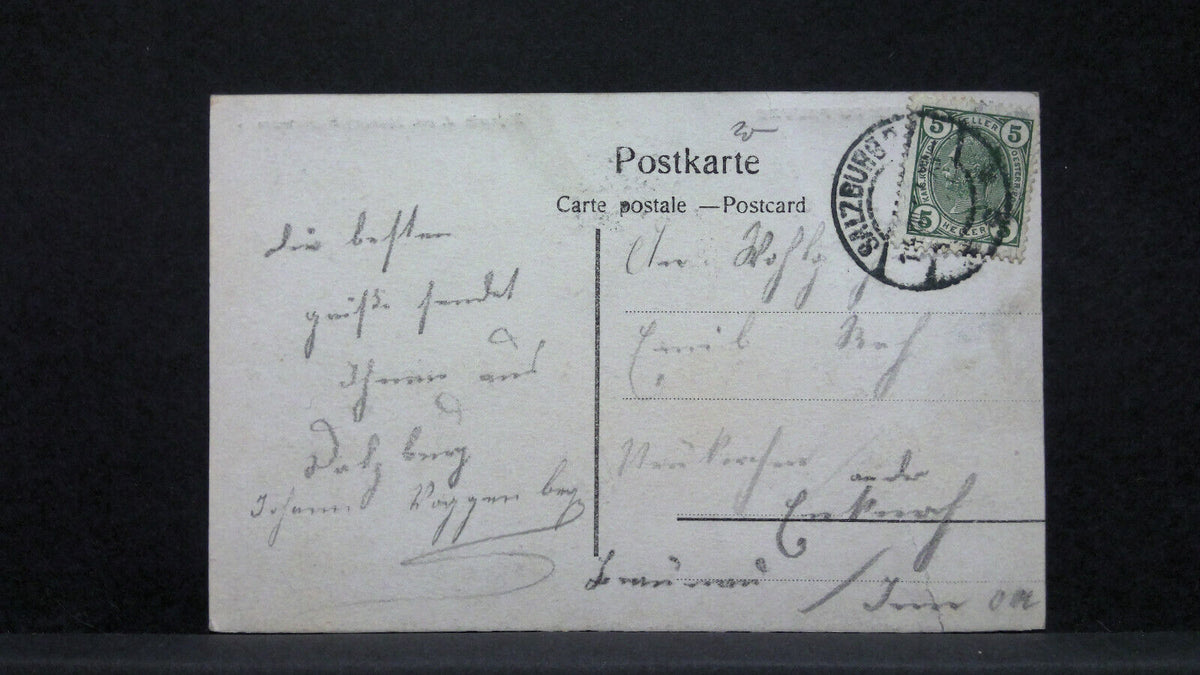 Postkarte
Carte postale — Postcard
SALZBURG
5 HELLER 5
5 HELLER 5
die besten
grüße sendet
Ihnen aus
Salzburg
Johann
An
Emil
Neukirchen an der
Enknach
Braunau / Inn OÖ